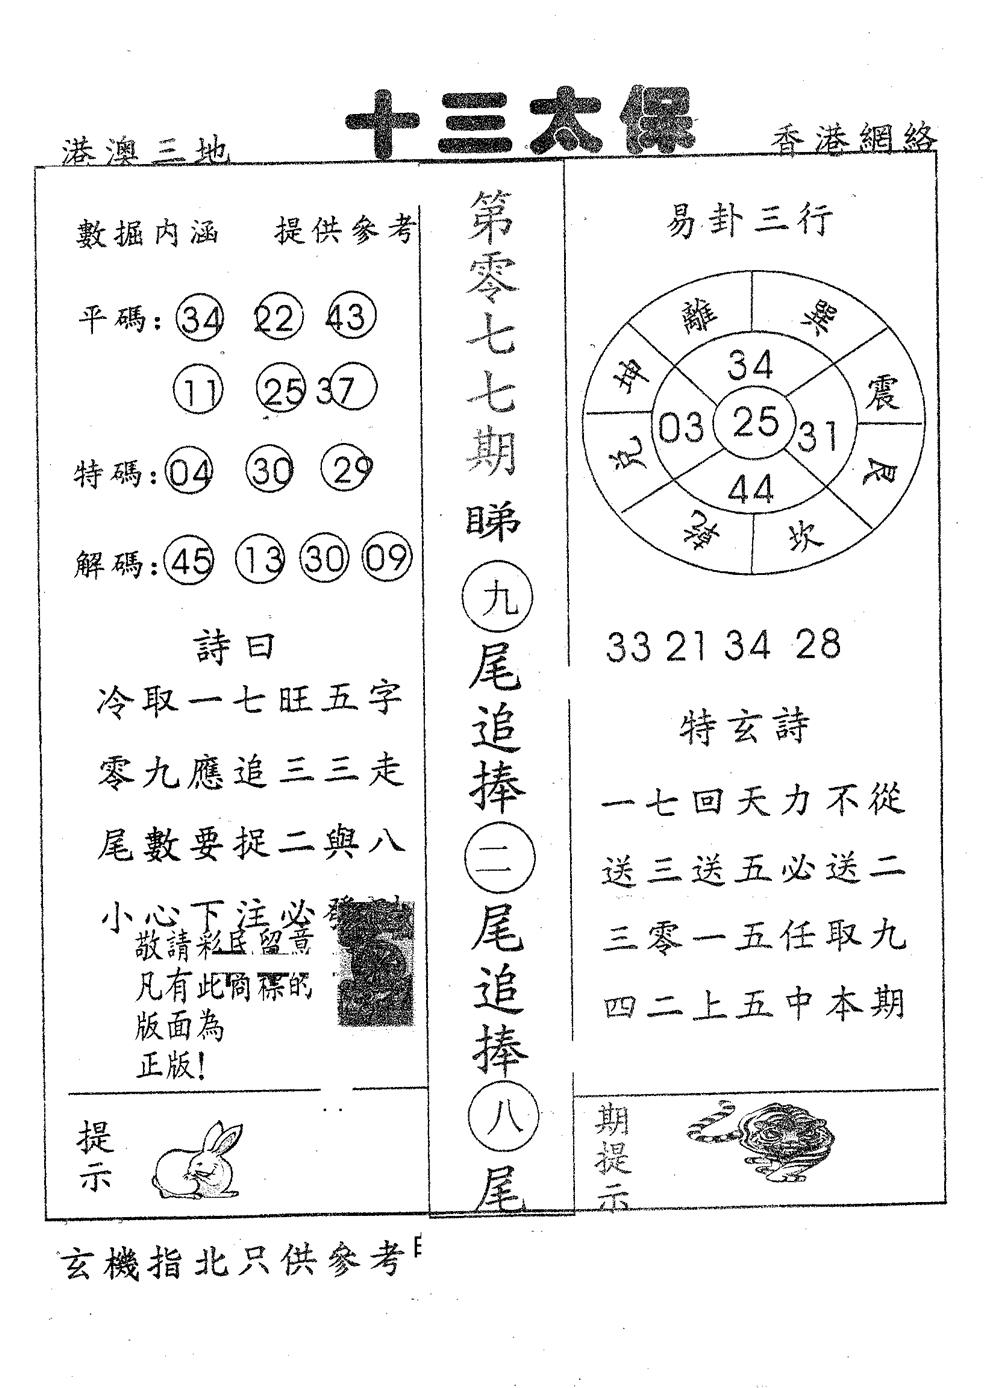 十三太保
港澳三地
香港網絡
數掘内涵 提供參考
平碼: 34 22 43
11 25 37
特碼: 04 30 29
解碼: 45 13 30 09
詩曰
冷取一七旺五字
零九應追三三走
尾數要捉二與八
小心下注必發
敬請彩民留意
凡有此商標的
版面為
正版!
提示
第零七七期睇九尾追捧二尾追捧八尾
易卦三行
離 巽
坤 震
兌 艮
乾 坎
34
03 25 31
44
33 21 34 28
特玄詩
一七回天力不從
送三送五必送二
三零一五任取九
四二上五中本期
期提示
玄機指北只供參考